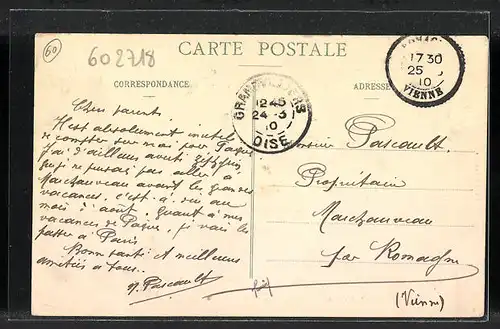 60
602718
CARTE POSTALE
CORRESPONDANCE
ADRESSE
12 45
24 - 3
10
OISE
17 30
25
10
VIENNE
Chers parents.
Il est absolument inutile
de compter sur moi pour Pâques
J'ai d'ailleurs averti
que je ne pensais pas aller à
Marchauveau avant les grandes
vacances, c'est à dire au
mois d'août. Quant à mes
vacances de Pâques, je vais les
passer à Paris
Bonne santé et meilleures
amitiés à tous.
Pascault
Monsieur Pascault
Propriétaire
Marchauveau
par Romagne
(Vienne)